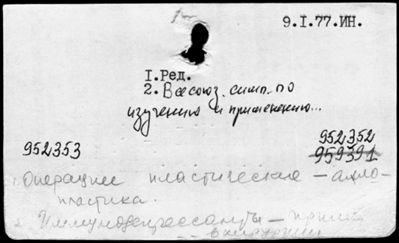 9.I.77.ИН.
I.Ред.
2. Всесоюз. симп. по
изучению и применению...
952353
952352
959391
1. Операции пластические – алло-
пластика.
2. Иммунодепрессанты –
в хирургии